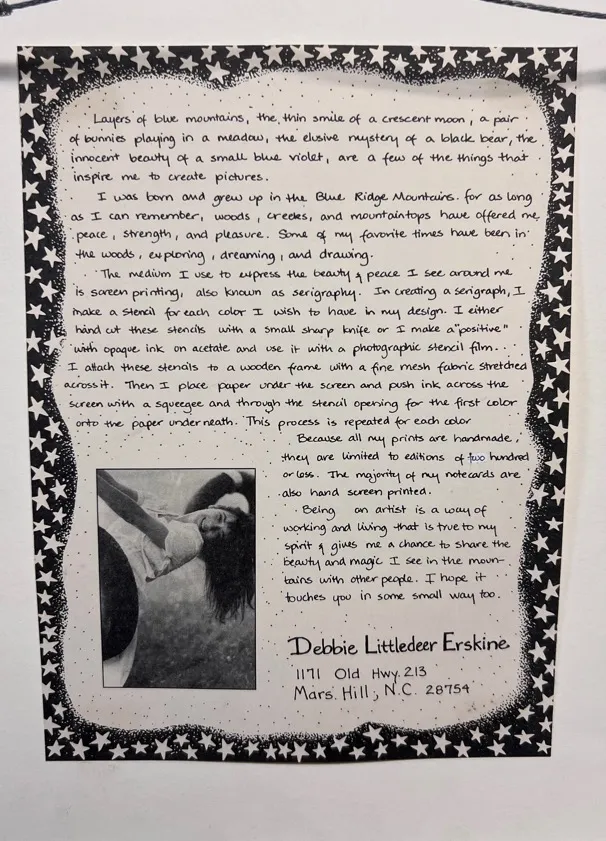 Layers of blue mountains, the thin smile of a crescent moon, a pair
of bunnies playing in a meadow, the elusive mystery of a black bear, the
innocent beauty of a small blue violet, are a few of the things that
inspire me to create pictures.
I was born and grew up in the Blue Ridge Mountains. for as long
as I can remember, woods, creeks, and mountaintops have offered me
peace, strength, and pleasure. Some of my favorite times have been in
the woods, exploring, dreaming, and drawing.
The medium I use to express the beauty & peace I see around me
is screen printing, also known as serigraphy. In creating a serigraph, I
make a stencil for each color I wish to have in my design. I either
hand cut these stencils with a small sharp knife or I make a "positive"
with opaque ink on acetate and use it with a photographic stencil film...
I attach these stencils to a wooden frame with a fine mesh fabric stretched
across it. Then I place paper under the screen and push ink across the
screen with a squeegee and through the stencil opening for the first color
onto the paper underneath. This process is repeated for each color
Because all my prints are handmade,
they are limited to editions of two hundred
or less. The majority of my notecards are
also hand screen printed.
Being an artist is a way of
working and living that is true to my
spirit & gives me a chance to share the
beauty and magic I see in the moun-
tains with other people. I hope it
touches you in some small way too.
Debbie Littledeer Erskine
1171 Old Hwy. 213
Mars Hill, N.C. 28754